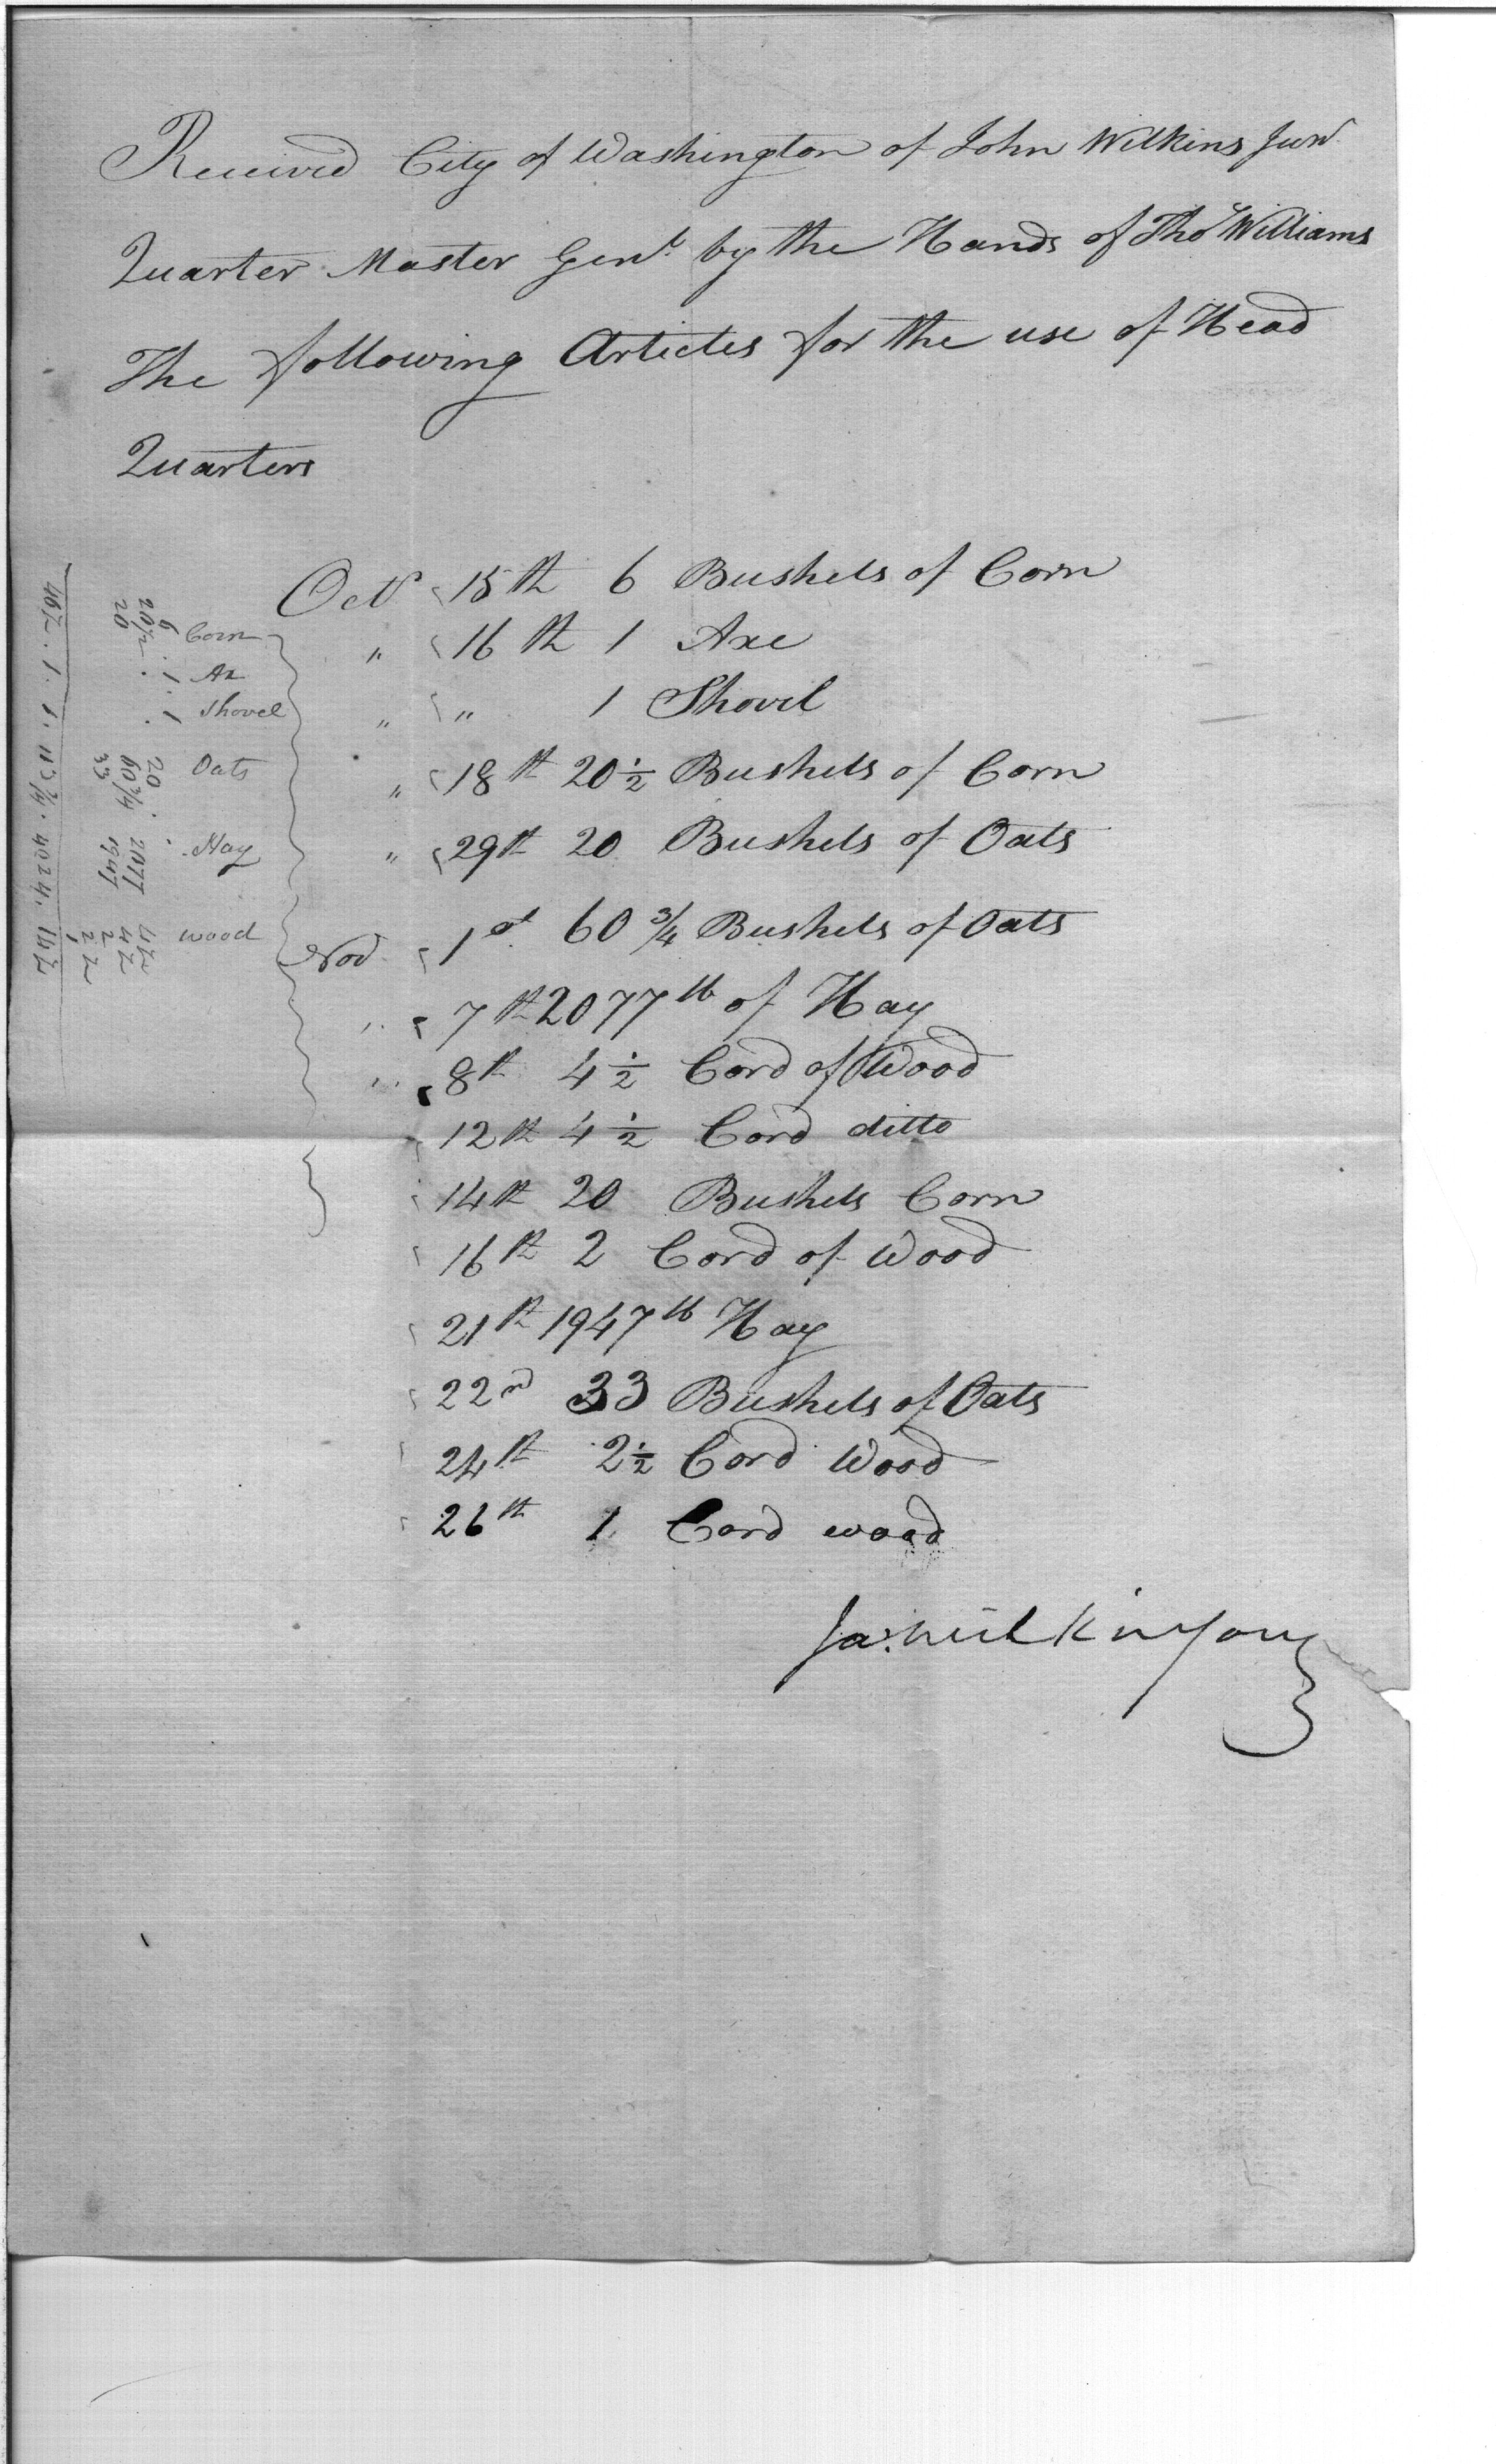 Received City of Washington of John Wilkins Junr
Quarter Master Genl. by the Hands of Tho Williams
The following Articles for the use of Head
Quarters
Octr 15th 6 Bushels of Corn
" 16th 1 Axe
" " 1 Shovil
" 18th 20 1/2 Bushels of Corn
" 29th 20 Bushels of Oats
Nov. 1st 60 3/4 Bushels of Oats
" 7th 2077 lb of Hay
" 8th 4 1/2 Cord of Wood
12th 4 1/2 Cord ditto
14th 20 Bushels Corn
16th 2 Cord of Wood
21th 1947 lb Hay
22nd 33 Bushels of Oats
24th 2 1/2 Cord Wood
26th 1 Cord wood
Ja: Wilkinson
Corn
6
20 1/2
20
Ax
1
Shovel
1
Oats
20
60 3/4
33
Hay
2077
1947
wood
4 1/2
4 1/2
2
2 1/2
1
46 1/2 . 1 . 1 . 113 3/4 . 4024 . 14 1/2